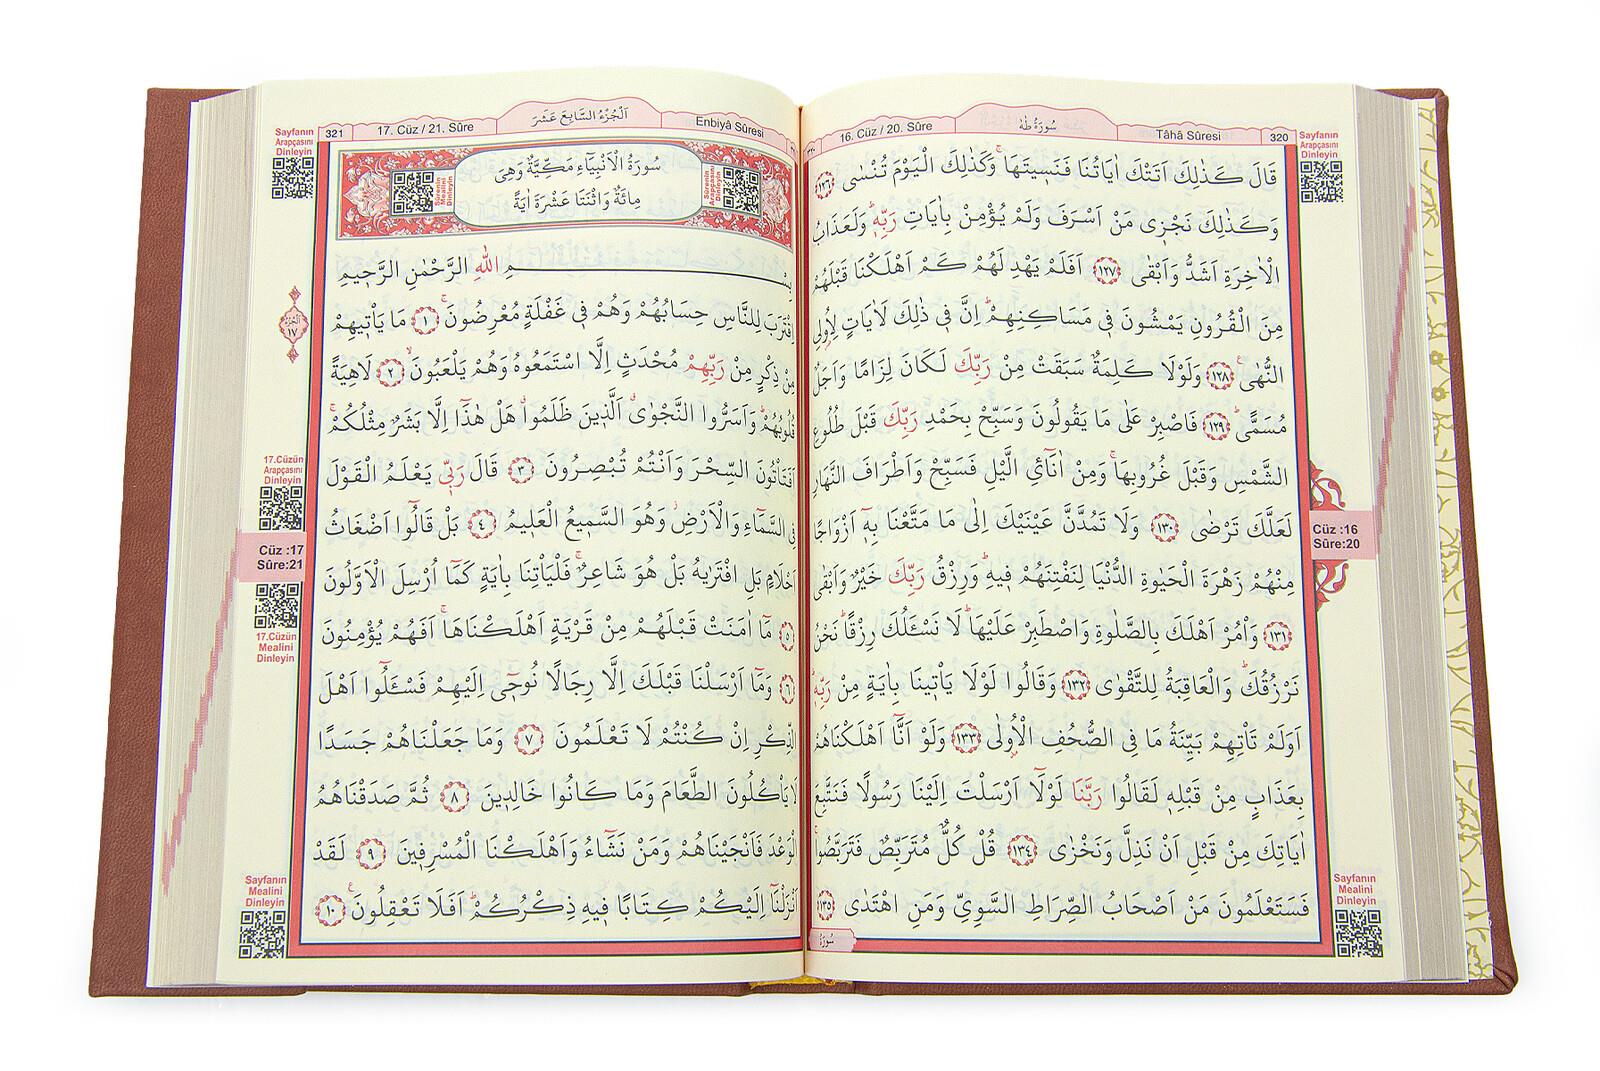 320
Tâhâ Sûresi
سُورَةُ طٰهٰ
16. Cüz / 20. Sûre
Sayfanın
Arapçasını
Dinleyin
قَالَ كَذٰلِكَ اَتَتْكَ اٰيَاتُنَا فَنَسٖيتَهَاۚ وَكَذٰلِكَ الْيَوْمَ تُنْسٰى ﴿١٢٦﴾
وَكَذٰلِكَ نَجْزٖى مَنْ اَسْرَفَ وَلَمْ يُؤْمِنْ بِاٰيَاتِ رَبِّهٖؕ وَلَعَذَابُ
الْاٰخِرَةِ اَشَدُّ وَاَبْقٰى ﴿١٢٧﴾ اَفَلَمْ يَهْدِ لَهُمْ كَمْ اَهْلَكْنَا قَبْلَهُمْ
مِنَ الْقُرُونِ يَمْشُونَ فٖى مَسَاكِنِهِمْؕ اِنَّ فٖى ذٰلِكَ لَاٰيَاتٍ لِاُولِى
النُّهٰىۚ ﴿١٢٨﴾ وَلَوْلَا كَلِمَةٌ سَبَقَتْ مِنْ رَبِّكَ لَكَانَ لِزَامًا وَاَجَلٌ
مُسَمًّىؕ ﴿١٢٩﴾ فَاصْبِرْ عَلٰى مَا يَقُولُونَ وَسَبِّحْ بِحَمْدِ رَبِّكَ قَبْلَ طُلُوعِ
الشَّمْسِ وَقَبْلَ غُرُوبِهَاۚ وَمِنْ اٰنَآئِ الَّيْلِ فَسَبِّحْ وَاَطْرَافَ النَّهَارِ
لَعَلَّكَ تَرْضٰى ﴿١٣٠﴾ وَلَا تَمُدَّنَّ عَيْنَيْكَ اِلٰى مَا مَتَّعْنَا بِهٖٓ اَزْوَاجًا
مِنْهُمْ زَهْرَةَ الْحَيٰوةِ الدُّنْيَا لِنَفْتِنَهُمْ فٖيهِؕ وَرِزْقُ رَبِّكَ خَيْرٌ وَاَبْقٰى
﴿١٣١﴾ وَاْمُرْ اَهْلَكَ بِالصَّلٰوةِ وَاصْطَبِرْ عَلَيْهَاؕ لَا نَسْـَٔلُكَ رِزْقًاؕ نَحْنُ
نَرْزُقُكَؕ وَالْعَاقِبَةُ لِلتَّقْوٰى ﴿١٣٢﴾ وَقَالُوا لَوْلَا يَاْتٖينَا بِاٰيَةٍ مِنْ رَبِّهٖؕ
اَوَلَمْ تَاْتِهِمْ بَيِّنَةُ مَا فِى الصُّحُفِ الْاُولٰى ﴿١٣٣﴾ وَلَوْ اَنَّٓا اَهْلَكْنَاهُمْ
بِعَذَابٍ مِنْ قَبْلِهٖ لَقَالُوا رَبَّنَا لَوْلَٓا اَرْسَلْتَ اِلَيْنَا رَسُولًا فَنَتَّبِعَ
اٰيَاتِكَ مِنْ قَبْلِ اَنْ نَذِلَّ وَنَخْزٰى ﴿١٣٤﴾ قُلْ كُلٌّ مُتَرَبِّصٌ فَتَرَبَّصُواۚ
فَسَتَعْلَمُونَ مَنْ اَصْحَابُ الصِّرَاطِ السَّوِىِّ وَمَنِ اهْتَدٰى ﴿١٣٥﴾
سُورَةُ
Cüz :16
Sûre:20
Sayfanın
Mealini
Dinleyin
Enbiyâ Sûresi
اَلْجُزْءُ السَّابِعَ عَشَرَ
17. Cüz / 21. Sûre
321
Sayfanın
Arapçasını
Dinleyin
سُورَةُ الْاَنْبِيَٓاءِ مَكِّيَّةٌ وَهِىَ
مِائَةٌ وَاثْنَتَا عَشْرَةَ اٰيَةً
Sûrenin
Arapçasını
Dinleyin
Sûrenin
Mealini
Dinleyin
بِسْمِ اللّٰهِ الرَّحْمٰنِ الرَّحٖيمِ
اِقْتَرَبَ لِلنَّاسِ حِسَابُهُمْ وَهُمْ فٖى غَفْلَةٍ مُعْرِضُونَۚ ﴿١﴾ مَا يَاْتٖيهِمْ
مِنْ ذِكْرٍ مِنْ رَبِّهِمْ مُحْدَثٍ اِلَّا اسْتَمَعُوهُ وَهُمْ يَلْعَبُونَۙ ﴿٢﴾ لَاهِيَةً
قُلُوبُهُمْؕ وَاَسَرُّوا النَّجْوٰىۗ اَلَّذٖينَ ظَلَمُواۗ هَلْ هٰذَٓا اِلَّا بَشَرٌ مِثْلُكُمْۚ
اَفَتَاْتُونَ السِّحْرَ وَاَنْتُمْ تُبْصِرُونَ ﴿٣﴾ قَالَ رَبّٖى يَعْلَمُ الْقَوْلَ
فِى السَّمَٓاءِ وَالْاَرْضِؗ وَهُوَ السَّمٖيعُ الْعَلٖيمُ ﴿٤﴾ بَلْ قَالُٓوا اَضْغَاثُ
اَحْلَامٍ بَلِ افْتَرٰيهُ بَلْ هُوَ شَاعِرٌۚ فَلْيَاْتِنَا بِاٰيَةٍ كَمَٓا اُرْسِلَ الْاَوَّلُونَ
﴿٥﴾ مَٓا اٰمَنَتْ قَبْلَهُمْ مِنْ قَرْيَةٍ اَهْلَكْنَاهَاۚ اَفَهُمْ يُؤْمِنُونَ
﴿٦﴾ وَمَٓا اَرْسَلْنَا قَبْلَكَ اِلَّا رِجَالًا نُوحٖٓى اِلَيْهِمْ فَسْـَٔلُٓوا اَهْلَ
الذِّكْرِ اِنْ كُنْتُمْ لَا تَعْلَمُونَ ﴿٧﴾ وَمَا جَعَلْنَاهُمْ جَسَدًا
لَا يَاْكُلُونَ الطَّعَامَ وَمَا كَانُوا خَالِدٖينَ ﴿٨﴾ ثُمَّ صَدَقْنَاهُمُ
الْوَعْدَ فَاَنْجَيْنَاهُمْ وَمَنْ نَشَٓاءُ وَاَهْلَكْنَا الْمُسْرِفٖينَ ﴿٩﴾ لَقَدْ
اَنْزَلْنَٓا اِلَيْكُمْ كِتَابًا فٖيهِ ذِكْرُكُمْؕ اَفَلَا تَعْقِلُونَۚ ﴿١٠﴾
اَلْجُزْءُ
١٧
17.Cüzün
Arapçasını
Dinleyin
Cüz :17
Sûre:21
17.Cüzün
Mealini
Dinleyin
Sayfanın
Mealini
Dinleyin